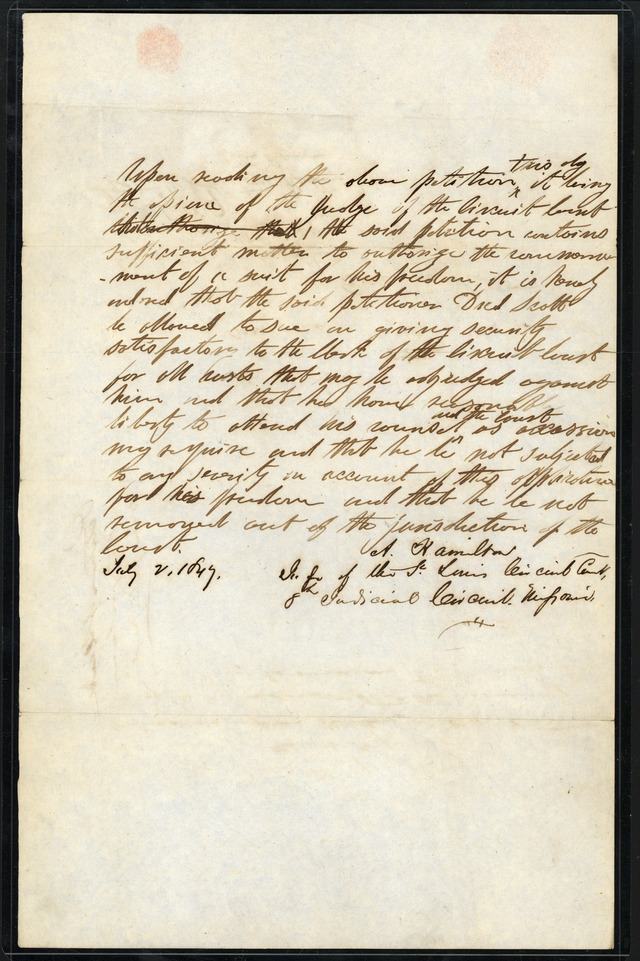 Upon reading the above petition this day it being
the opinion of the Judge of the Circuit Court
that the said petition contains
sufficient matter to authorize the commence
-ment of a suit for his freedom, it is hereby
ordered that the said petitioner Dred Scott
be allowed to sue on giving security
satisfactory to the Clerk of the Circuit Court
for all costs that may be adjudged against
him and that he have reasonable
liberty to attend his counsel and the Court as occasion
may require and that he be not subjected
to any severity on account of this application
for his freedom and that he be not
removed out of the jurisdiction of the
Court.
A. Hamilton
July 2, 1847.
of the St. Louis Circuit Court,
8th Judicial Circuit. Missouri.